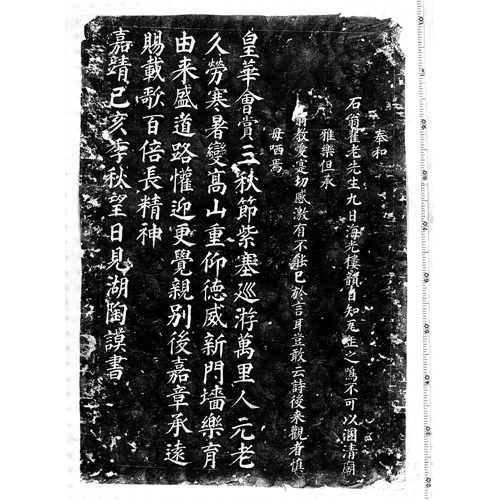 奉和
石翁崔老先生九日海光樓韻自知瓦缶之鳴不可以溷清廟
雅樂但承
翁教愛寔切感激有不能已於言耳豈敢云詩後来觀者慎
毋哂焉
皇華會賞三秋節紫塞巡游萬里人元老
久勞寒暑變高山重仰德威新門墻樂育
由来盛道路懽迎更覺親别後嘉章承遠
賜載歌百倍長精神
嘉靖己亥季秋望日見湖陶謨書